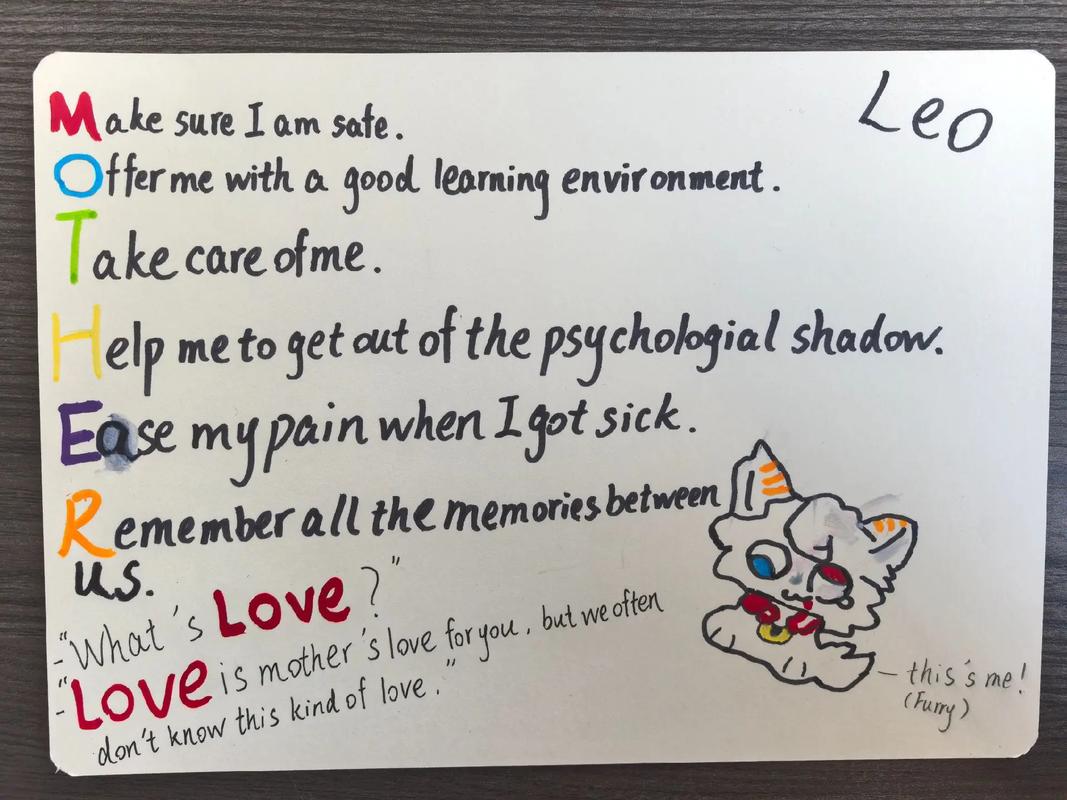 Leo
Make sure I am safe.
Offer me with a good learning environment.
Take care of me.
Help me to get out of the psychologial shadow.
Ease my pain when I got sick.
Remember all the memories between
us.
-"What's Love?"
-"Love is mother's love for you, but we often
don't know this kind of love."
this's me!
(Furry)